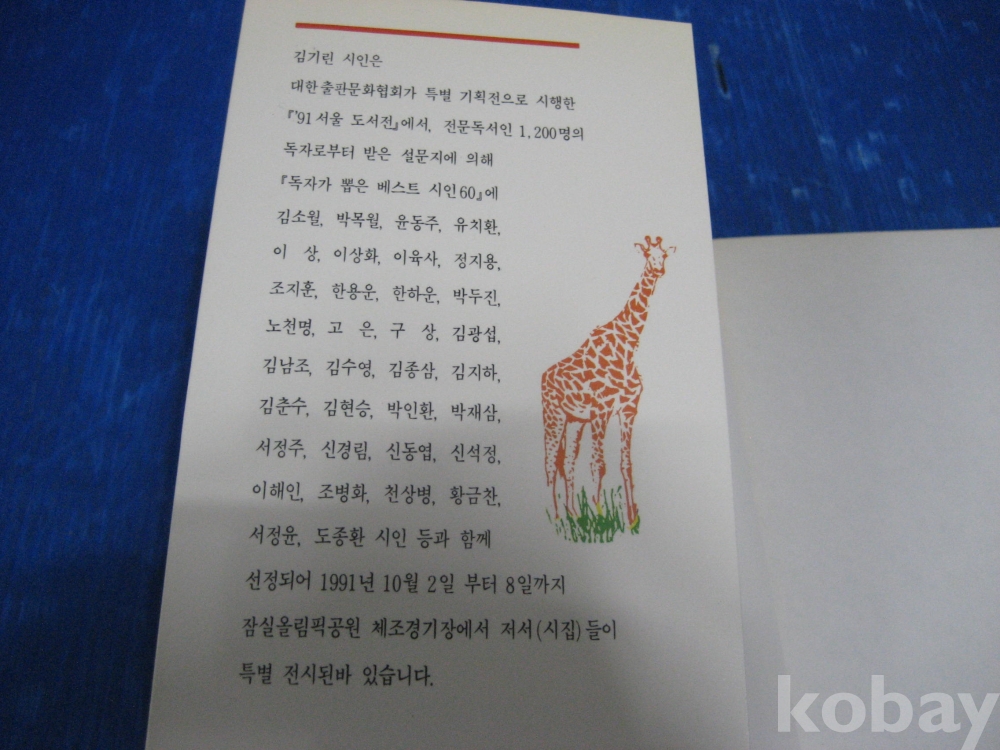 김기린 시인은
대한출판문화협회가 특별 기획전으로 시행한
『'91 서울 도서전』에서, 전문독서인 1,200명의
독자로부터 받은 설문지에 의해
『독자가 뽑은 베스트 시인60』에
김소월, 박목월, 윤동주, 유치환,
이 상, 이상화, 이육사, 정지용,
조지훈, 한용운, 한하운, 박두진,
노천명, 고 은, 구 상, 김광섭,
김남조, 김수영, 김종삼, 김지하,
김춘수, 김현승, 박인환, 박재삼,
서정주, 신경림, 신동엽, 신석정,
이해인, 조병화, 천상병, 황금찬,
서정윤, 도종환 시인 등과 함께
선정되어 1991년 10월 2일 부터 8일까지
잠실올림픽공원 체조경기장에서 저서(시집)들이
특별 전시된바 있습니다.
kobay